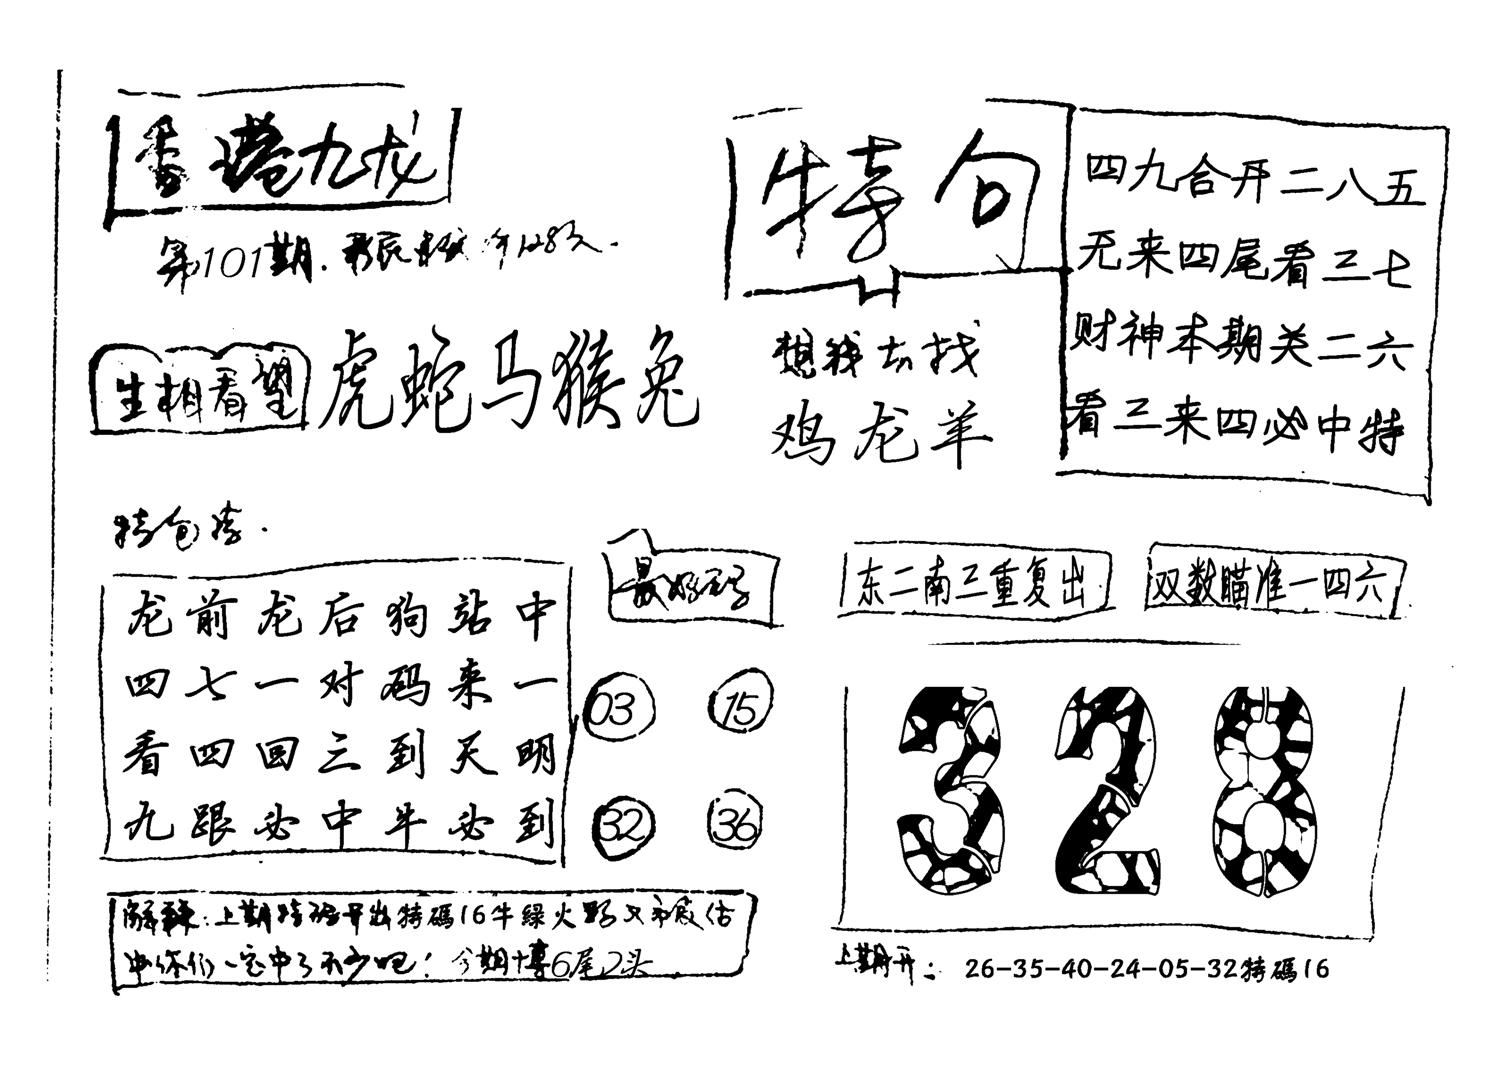 香港九龙
第101期.
生相看望
虎蛇马猴兔
特句
想我去找
鸡龙羊
四九合开二八五
无来四尾看三七
财神本期关二六
看三来四必中特
龙前龙后狗站中
四七一对码来一
看四回三到天明
九跟必中牛必到
最好码
03 15
32 36
东二南三重复出
双数瞄准一四六
328
上期特码开出特碼16牛綠火
中你们一定中了不少吧！今期博6尾2头
上期开： 26-35-40-24-05-32特碼16